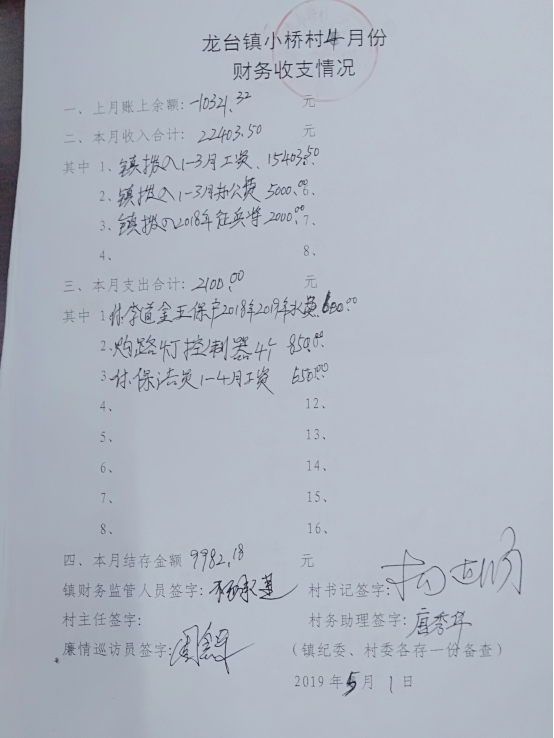 龙台镇小桥村4月份
财务收支情况
一、上月账上余额:-10321.32 元
二、本月收入合计: 22403.50 元
其中 1、镇拨入1-3月工资 15403.50
2、镇拨入1-3月办公费 5000.00 6、
3、镇拨入2018年征兵 2000.00 7、
4、 8、
三、本月支出合计:2100.00 元
其中 1、付李道金五保户2018年2019年水费 600.00
2、购路灯控制器4个 850.00
3、付保洁员1-4月工资 650.00
4、 12、
5、 13、
6、 14、
7、 15、
8、 16、
四、本月结存金额 9982.18 元
镇财务监管人员签字: 村书记签字:
村主任签字: 村务助理签字:唐秀华
廉情巡访员签字: (镇纪委、村委各存一份备查)
2019年5月1日